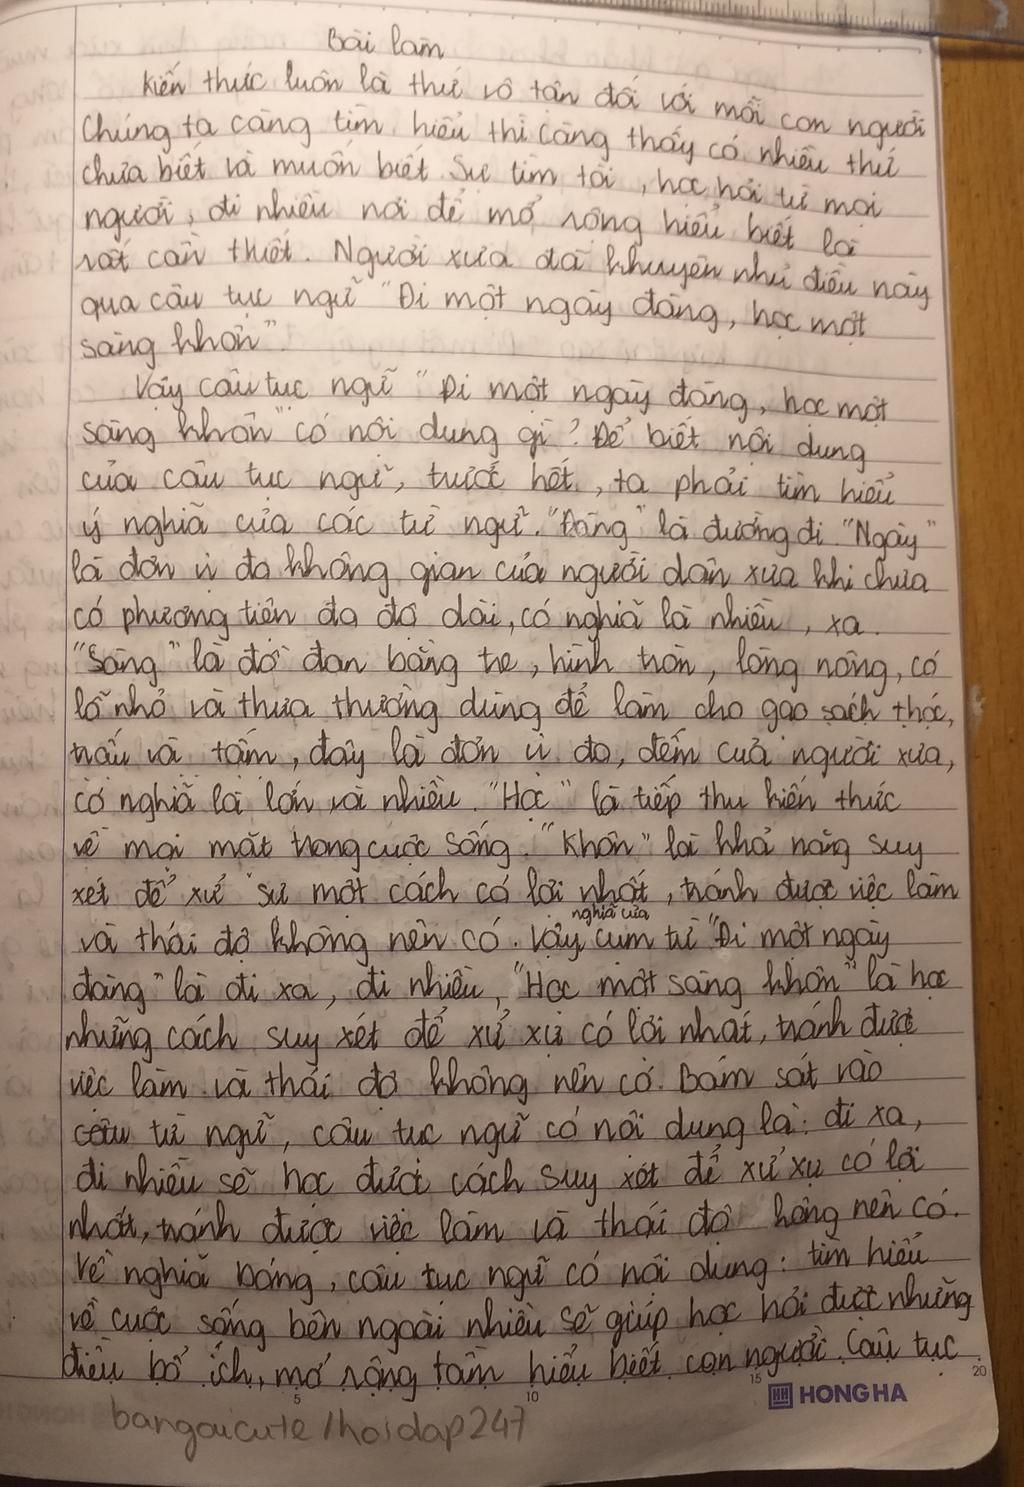 Bài làm
Kiến thức luôn là thứ vô tận đối với mỗi con người
Chúng ta càng tìm hiểu thì càng thấy có nhiều thứ
chưa biết và muốn biết. Sự tìm tòi, học hỏi từ mọi
người, đi nhiều nơi để mở rộng hiểu biết là
rất cần thiết. Người xưa đã khuyên nhủ điều này
qua câu tục ngữ "Đi một ngày đàng, học một
sàng khôn".
Vậy câu tục ngữ "Đi một ngày đàng, học một
sàng khôn" có nội dung gì? Để biết nội dung
của câu tục ngữ, trước hết, ta phải tìm hiểu
ý nghĩa của các từ ngữ. "Đàng" là đường đi. "Ngày"
là đơn vị đo không gian của người dân xưa khi chưa
có phương tiện đo độ dài, có nghĩa là nhiều, xa.
"Sàng" là đồ đan bằng tre, hình tròn, lòng nông, có
lỗ nhỏ và thưa thường dùng để làm cho gạo sạch thóc,
trấu và tấm, đây là đơn vị đo, đếm của người xưa,
có nghĩa là lớn và nhiều. "Học" là tiếp thu kiến thức
về mọi mặt trong cuộc sống. "Khôn" là khả năng suy
xét để xử sự một cách có lợi nhất, tránh được việc làm
và thái độ không nên có. Vậy nghĩa của cụm từ "Đi một ngày
đàng" là đi xa, đi nhiều, "Học một sàng khôn" là học
những cách suy xét để xử xự có lời nhất, tránh được
việc làm và thái độ không nên có. Bám sát vào
câu từ ngữ, câu tục ngữ có nội dung là: đi xa,
đi nhiều sẽ học được cách suy xét để xử xự có lợi
nhất, tránh được việc làm và thái độ hông nên có.
Về nghĩa bóng, câu tục ngữ có nội dung: tìm hiểu
về cuộc sống bên ngoài nhiều sẽ giúp học hỏi được những
điều bổ ích, mở rộng tầm hiểu biết con người. Câu tục
5 10 15 20
HONG HA
bangaicute/hoidap247